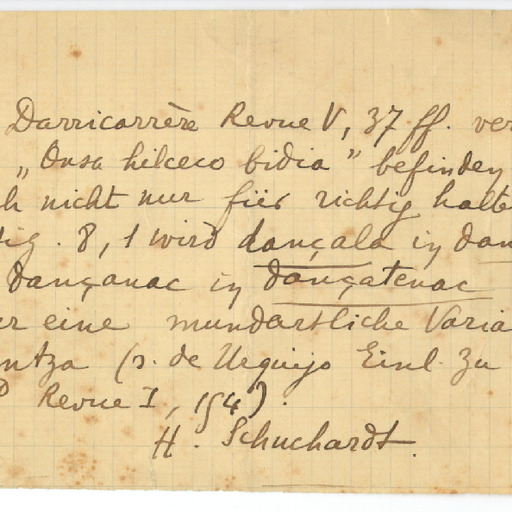 Darricarrère Revue V, 37 ff. ver
„Onsa hilceco bidia” befinden
h nicht nur für richtig halte
tig. 8, 1 wird dançala in dan
dançanac in dançatenac
er eine mundartliche Varia
ntza (s. de Urquijo Einl. zu
Revue I, 154).
H. Schuchardt.